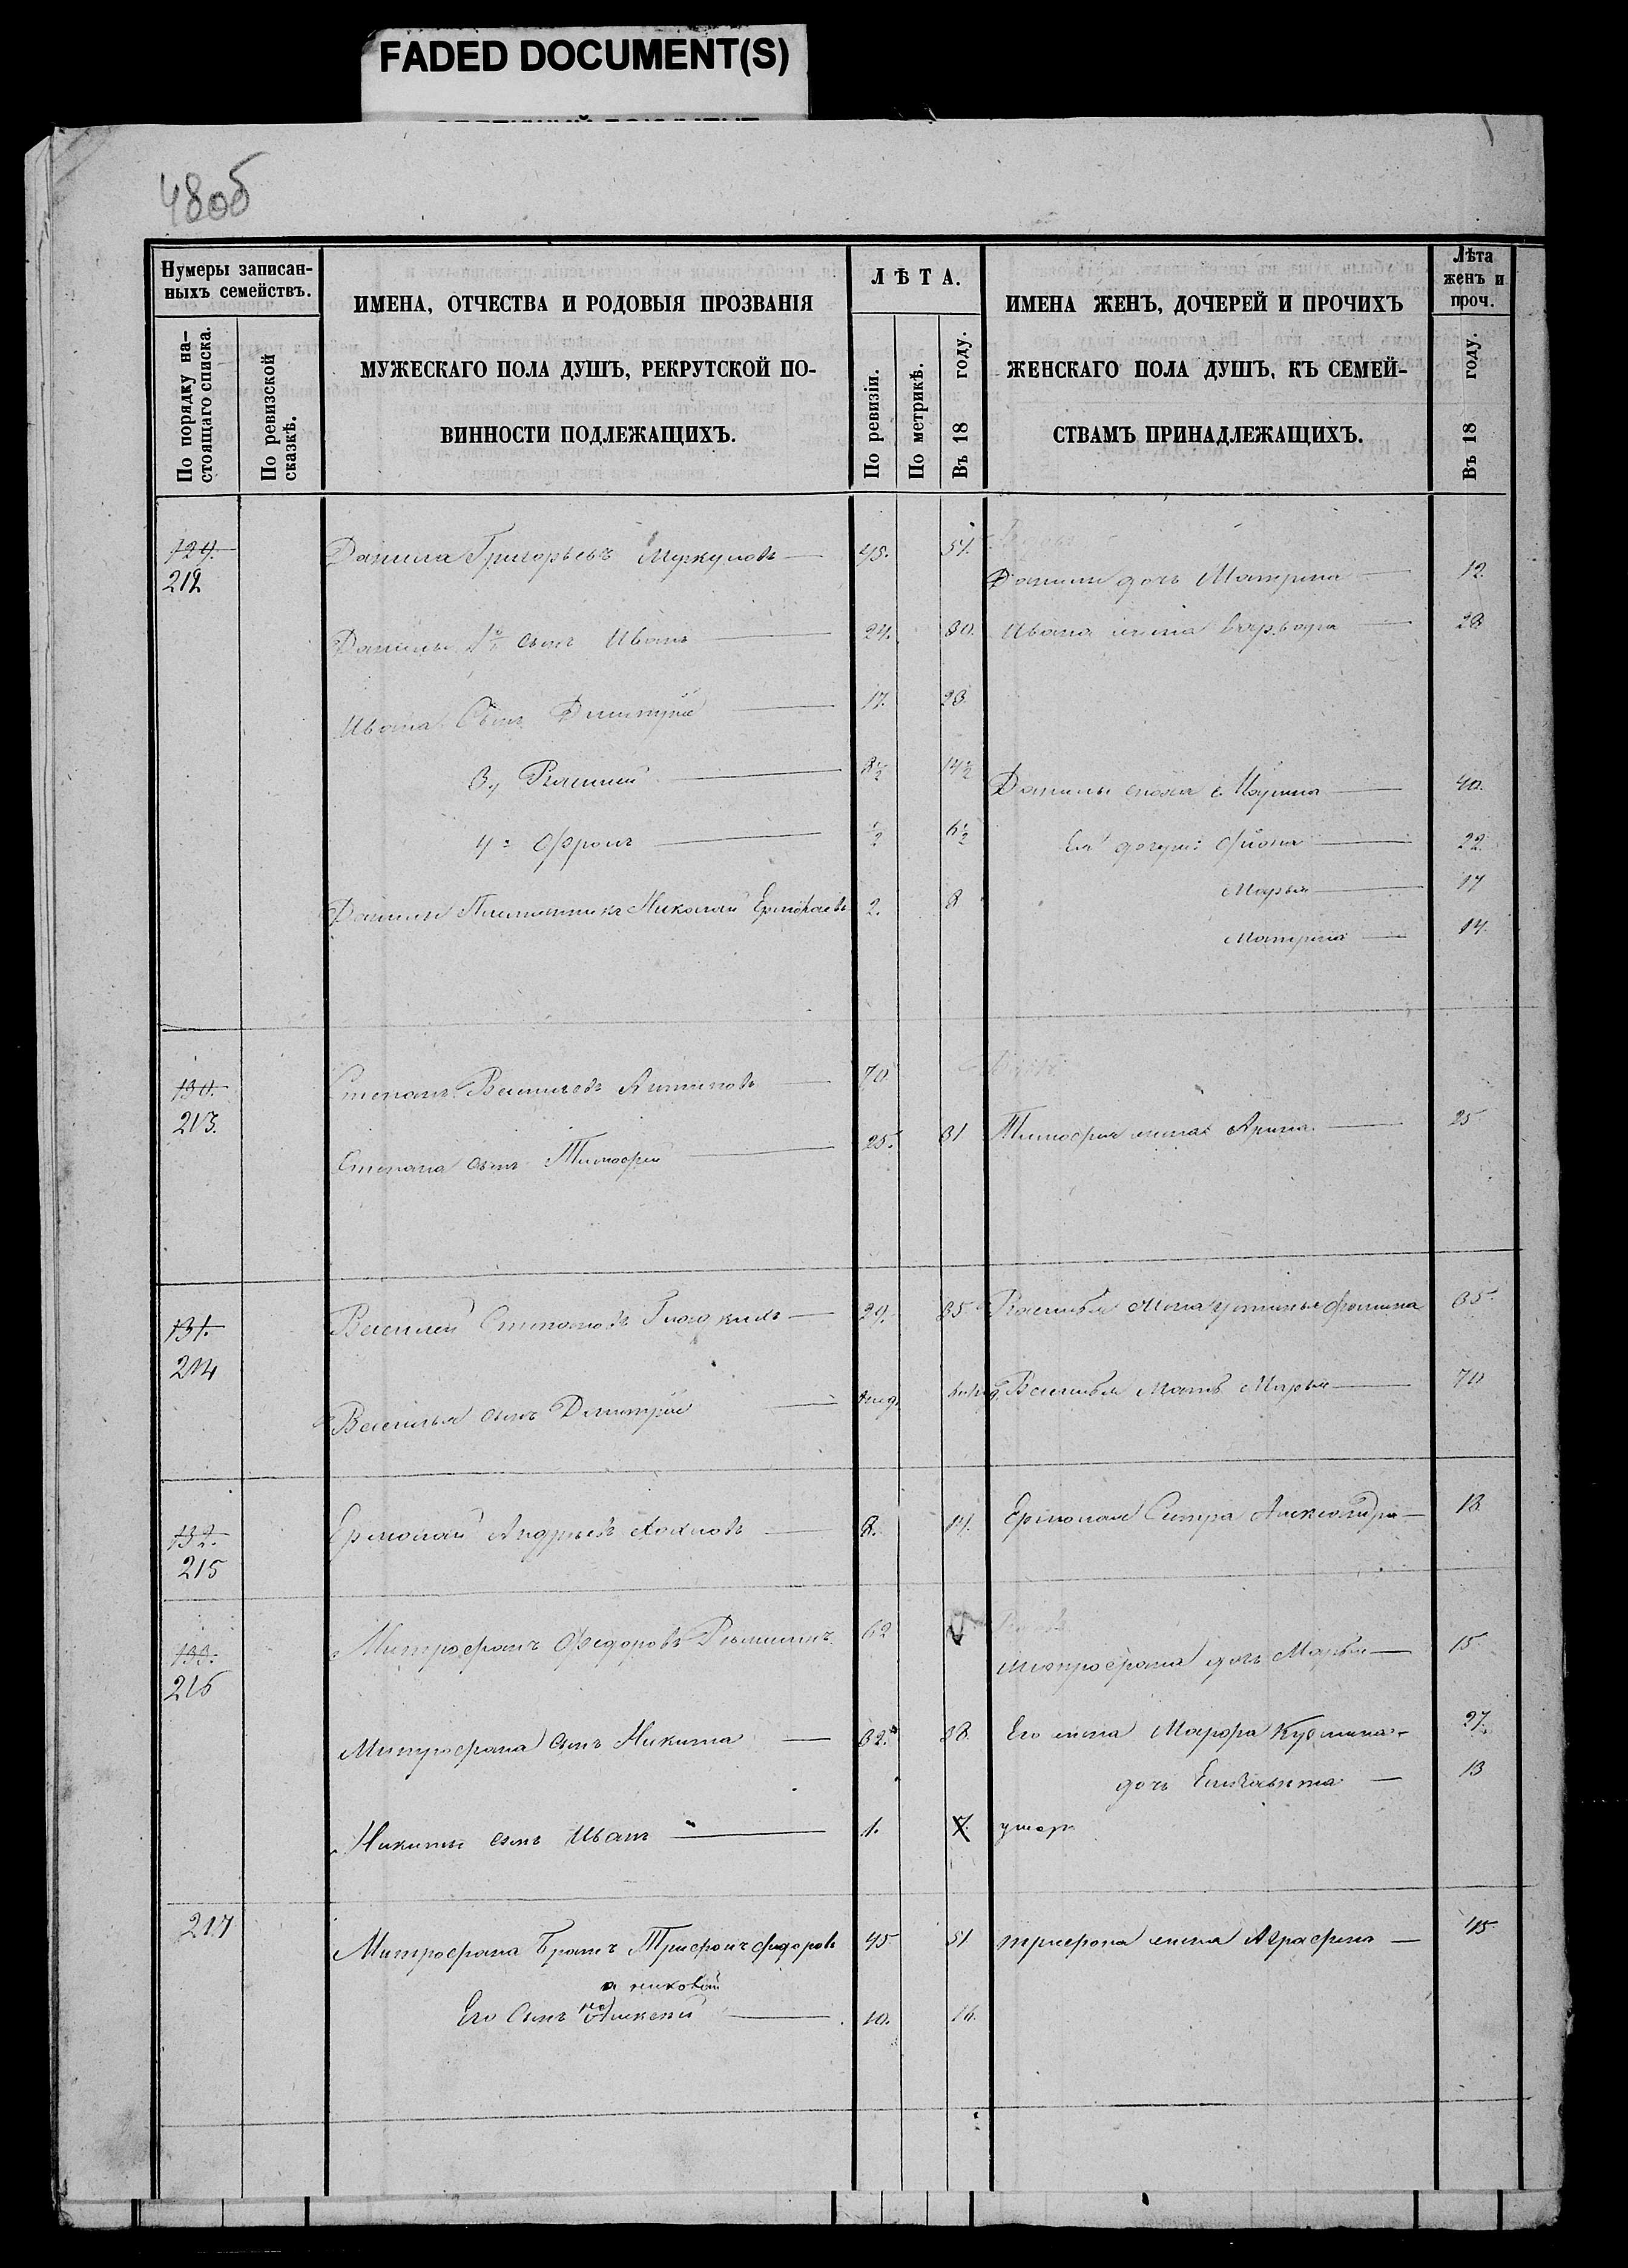 FADED DOCUMENT(S)
48об
Нумеры записан-
ныхъ семействъ.
По порядку на-
стоящаго списка.
По ревизской
сказкѣ.
ИМЕНА, ОТЧЕСТВА И РОДОВЫЯ ПРОЗВАНІЯ
МУЖЕСКАГО ПОЛА ДУШЪ, РЕКРУТСКОЙ ПО-
ВИННОСТИ ПОДЛЕЖАЩИХЪ.
ЛѢТА.
По ревизіи.
По метрикѣ.
Въ 18 году.
ИМЕНА ЖЕНЪ, ДОЧЕРЕЙ И ПРОЧИХЪ
ЖЕНСКАГО ПОЛА ДУШЪ, КЪ СЕМЕЙ-
СТВАМЪ ПРИНАДЛЕЖАЩИХЪ.
Лѣта
женъ и
проч.
Въ 18 году.
129.
212
Данила Григорьевъ 45. 51.
Данилы дочь Матрена 12.
Данилы 1й сынъ Иванъ 24. 30. Ивана жена Варвара 28
Ивана Сынъ Дмитрій 17. 23.
3, Василий 8½ 14½
Данилы сноха 40.
4: Офронъ ½ 6½
Ея дочери: 22.
Марья 17
Данилы Племянникъ Николай 2. 8
Матрена 14.
130.
213.
Степанъ Васильевъ Антиповъ 70
Степана сынъ Тимофей 25. 31 Тимофея жена Арина 25
131.
214
Василий Степановъ 29. 35 Василья жена Устинья Фомина 35.
Василья сынъ Дмитрій Василья мать Марья 70
132.
215
Ермолай Андреевъ 8. 14. Ермолая Сестра Александра 18
133.
216
Митрофанъ Федоровъ 62
Митрофана дочь Марья 15
Митрофана сынъ Никита 32. 38. Его жена Марфа Кузмина 27.
дочь Елизавета 13
Никиты сынъ Иванъ 1. 7. умеръ
217
Митрофана братъ Трифонъ Федоровъ 45 51. Трифона жена Аграфена 45
Его Сынъ Алексей 10. 16.